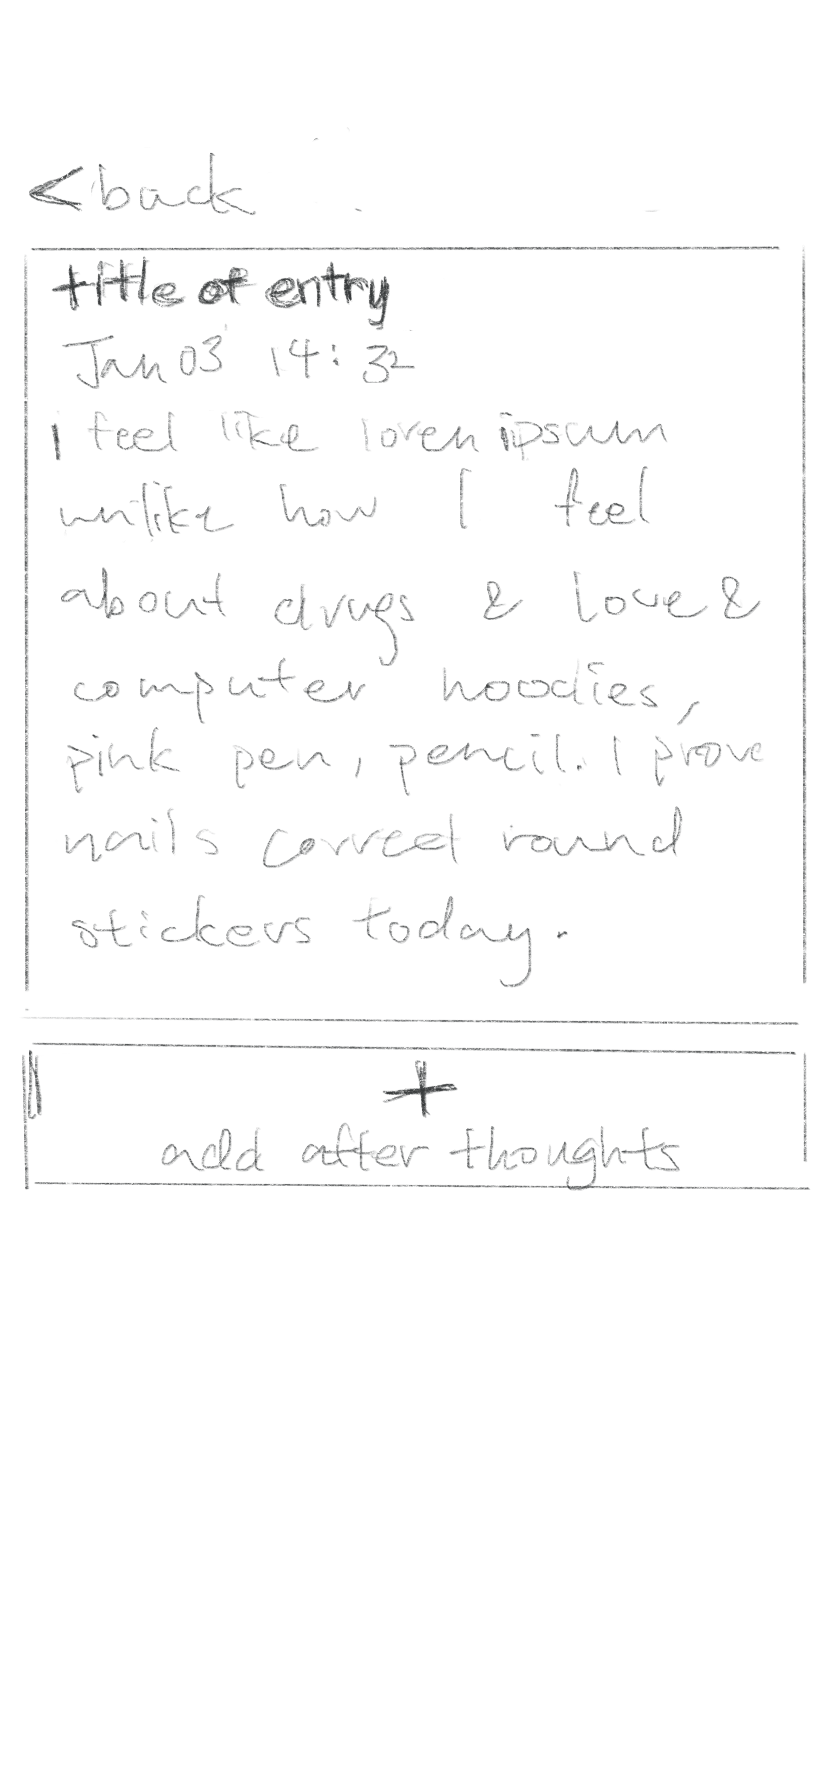 <back
title of entry
Jan 03 14:32
I feel like loren ipsum
unlike how I feel
about drugs & love &
computer hoodies,
pink pen, pencil. I prove
nails correct round
stickers today.
+
add after thoughts